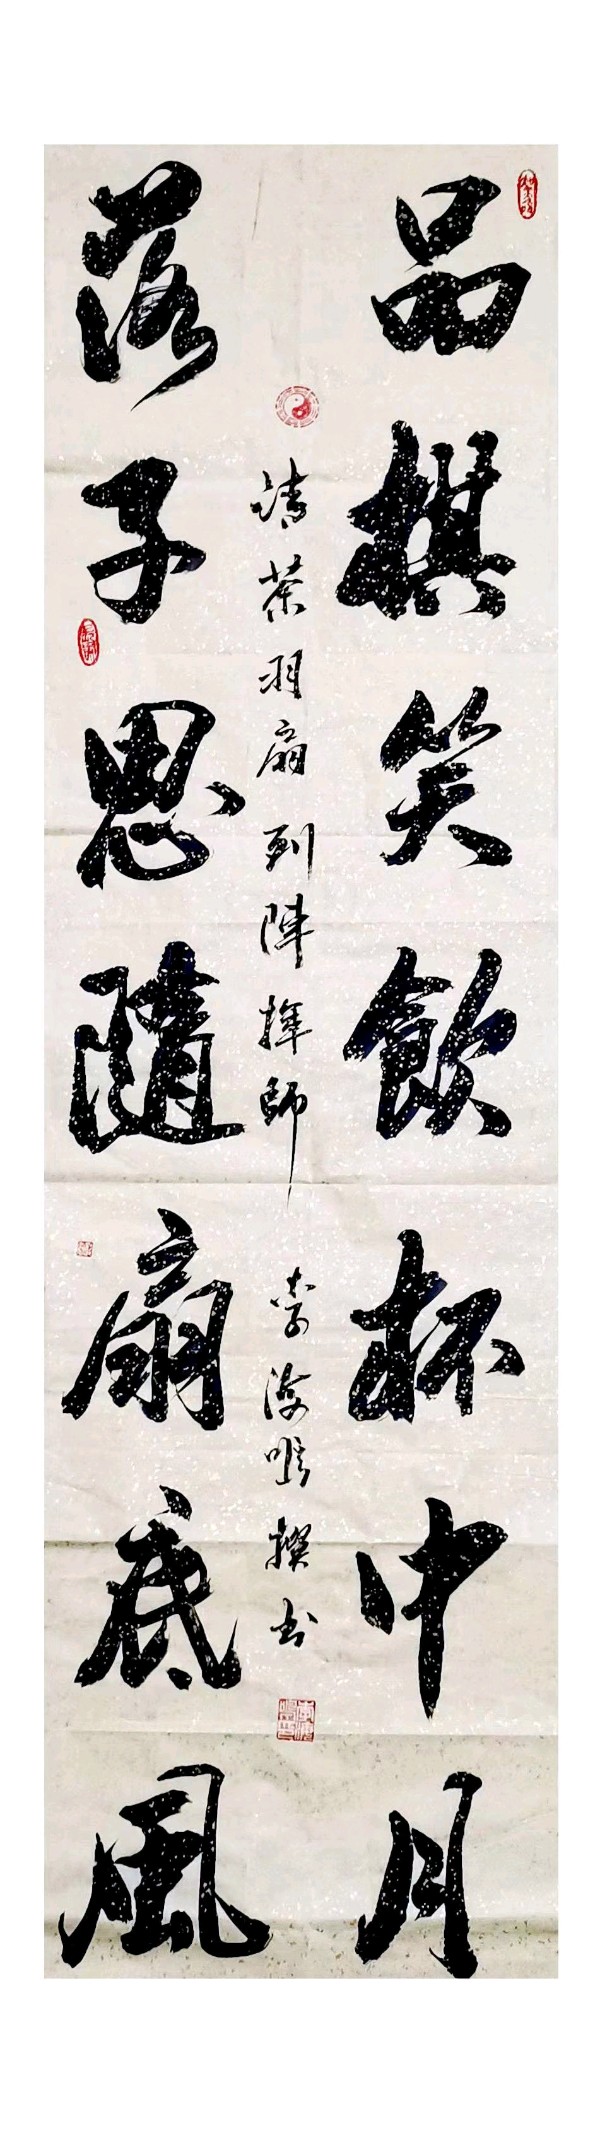 品棋笑飲杯中月
清茶羽扇列陣揮師
李海鳴撰书
落子思隨扇底風